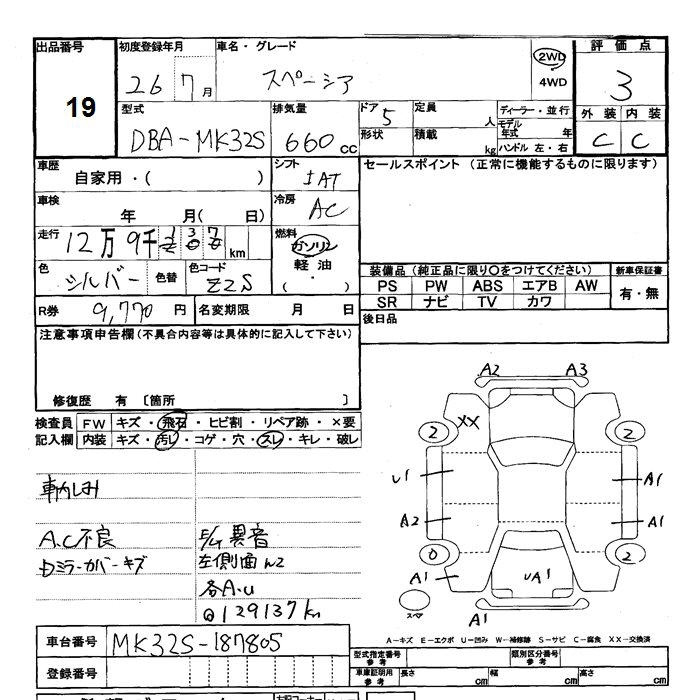 出品番号 初度登録年月 車名・グレード 評価点
19 26 7月 スペーシア 2WD 4WD 3
型式 排気量 ドア 5 定員 人 ディーラー・並行 外装 内装
DBA-MK32S 660cc 形状 積載 kg モデル年式 年 C C
ハンドル 左・右
車歴 シフト セールスポイント (正常に機能するものに限ります)
自家用・( ) IAT
車検 冷房
年 月( 日) AC
走行 12万9千137km 燃料 ガソリン
軽油
( ・ )
色 シルバー 色替 色コード Z2S 装備品 (純正品に限り○をつけてください) 新車保証書
PS PW ABS エアB AW 有・無
SR ナビ TV カワ
R券 9,770円 名変期限 月 日 後日品
注意事項申告欄(不具合内容等は具体的に記入して下さい)
修復歴 有 〔箇所 〕
検査員 FW キズ・飛石・ヒビ割・リペア跡・×要
記入欄 内装 キズ・汚レ・コゲ・穴・スレ・キレ・破レ
車内しみ
A.C不良 異音
Dミラーカバーキズ 左側面
各A.U
129137km
A2 A3
XX
2 2
U1 A1
A2 A1
0 2
A1 UA1
スペア A1
A-キズ E-エクボ U-凹み W-補修跡 S-サビ C-腐食 XX-交換済
車台番号 MK32S-187805
型式指定番号 参考 類別区分番号 参考
登録番号 車庫証明用 参考 長さ cm 幅 cm 高さ cm